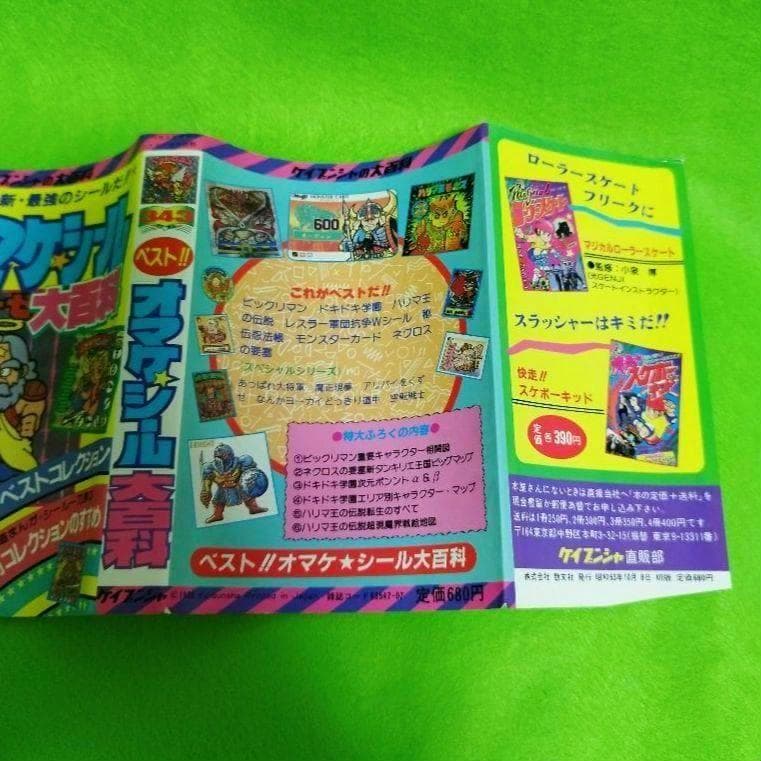 ケイブンシャの大百科
新・最強のシールだ
マケ★シール
大百科
ベストコレクション
コレクションのすすめ
343
ベスト!!
オマケ★シール
大百科
ケイブンシャ
ケイブンシャの大百科
600
これがベストだ!!
ビックリマン ドキドキ学園 ハリマ王
の伝説 レスラー軍団抗争Wシール 秘
伝忍法帳 モンスターカード ネクロス
の要塞
(スペシャルシリーズ)
あっぱれ大将軍 魔空現夢 アリババをくず
せ なんかヨーカイどっきり道中 空転戦士
●特大ふろくの内容●
①ビックリマン重要キャラクター相関図
②ネクロスの要塞新タンキリエ王国ビッグマップ
③ドキドキ学園次元ポイントα&β
④ドキドキ学園エリア別キャラクター・マップ
⑤ハリマ王の伝説転生のすべて
⑥ハリマ王の伝説超現魔界戦絵地図
ベスト!!オマケ★シール大百科
©1988 Keibunsha Printed in Japan 雑誌コード63547-97 定価680円
ローラースケート
フリークに
マジカルローラースケート
●監修:小泉 博
(光GENJI
スケートインストラクター)
スラッシャーはキミだ!!
快走!!
スケボーキッド
定価各390円
本屋さんにないときは直接当社へ「本の定価+送料」を
現金書留か郵便為替でお申し込み下さい。
送料は1冊250円、2冊300円、3冊350円、4冊400円です
〒164東京都中野区本町3-32-15(振替 東京9-13311番)
ケイブンシャ直販部
株式会社 勁文社 発行 昭和63年10月8日 初版 定価680円